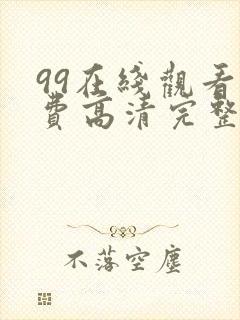 99在綫觀看
費高清完整
不落空塵